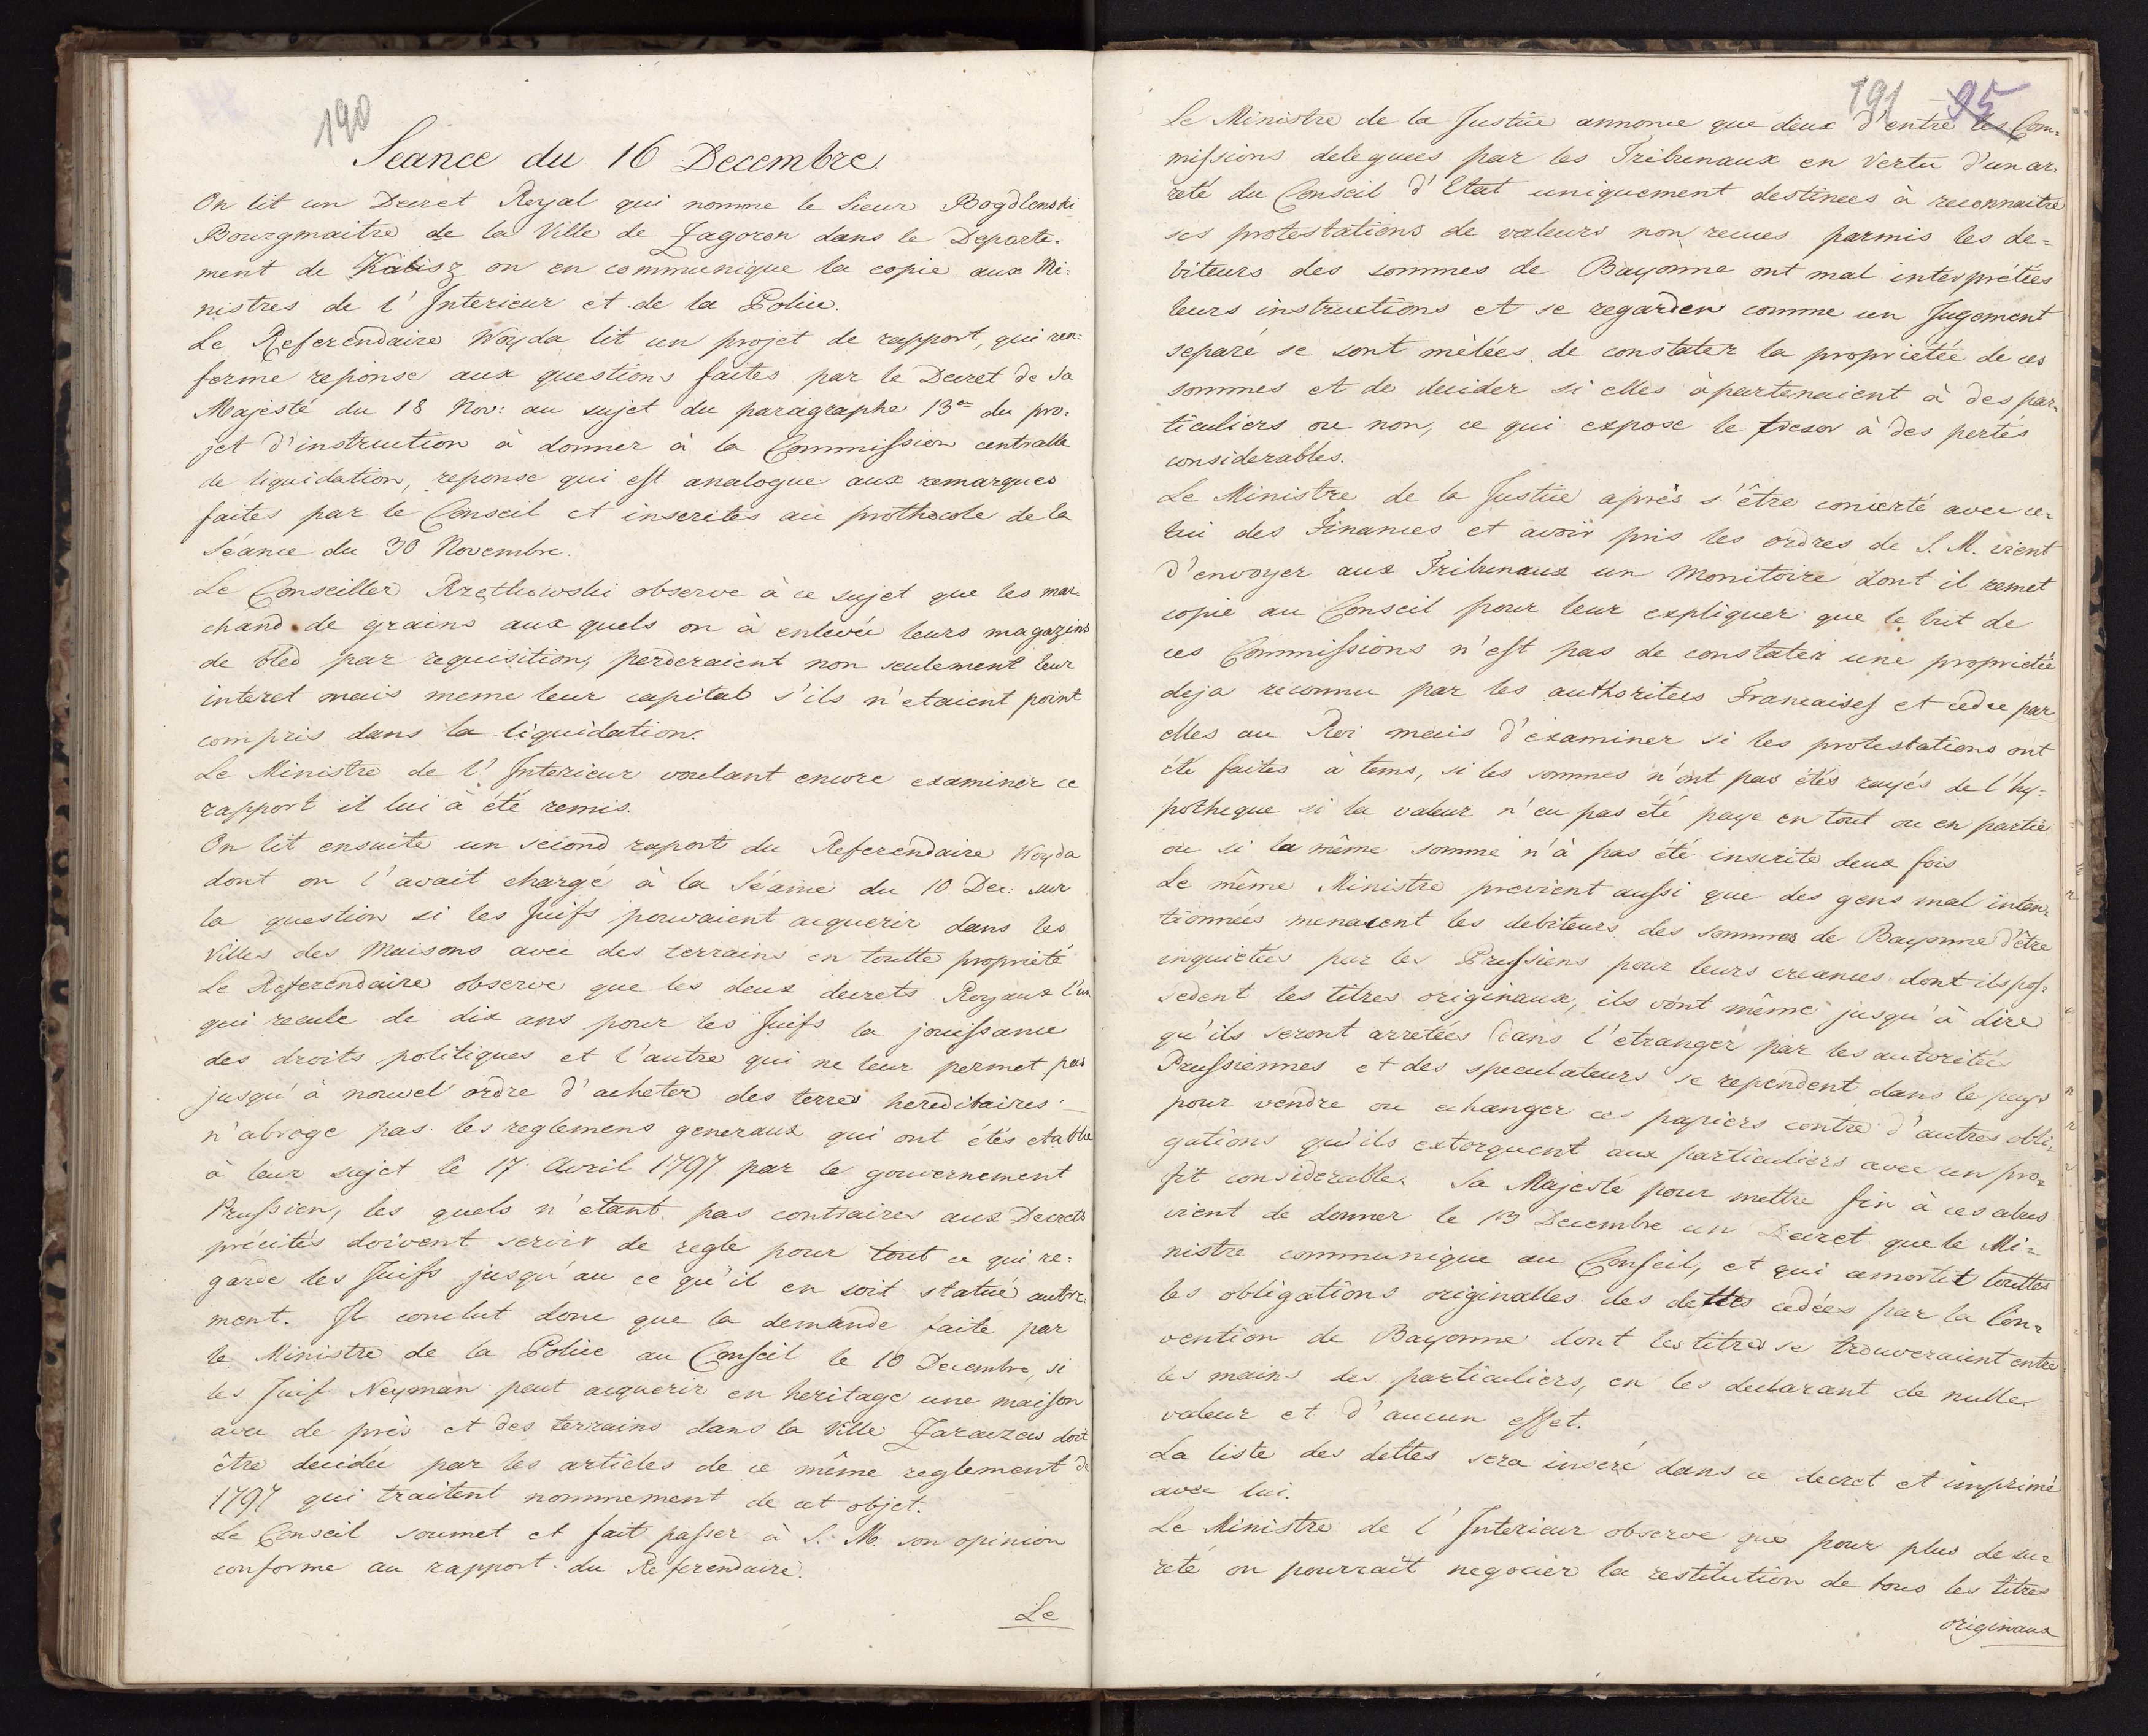 190
Seance du 16 Decembre.
On lit un Decret Royal qui nomme le Sieur Bogdlenski
Bourgmaitre de la Ville de Zagorow dans le Departe-
ment de Kalisz on en communique la copie aux Mi=
nistres de l'Interieur et de la Police.
Le Referendaire Woyda lit un projet de rapport, qui ren=
ferme reponse aux questions faites par le Decret de Sa
Majesté du 18 Nov: au sujet du paragraphe 13 du pro-
jet d'instruction à donner à la Commission centralle
de liquidation, reponse qui est analogue aux remarques
faites par le Conseil et inscrites au prothocole de la
Séance du 30 Novembre.
Le Conseiller observe à ce sujet que les mar-
chand de grains aux quels on à enlevée leurs magazins
de bled par requisition, perderaient non seulement leur
interet mais meme leur capital s'ils n'etaient point
compris dans la liquidation.
Le Ministre de l'Interieur voulant encore examiner ce
rapport il lui à été remis.
On lit ensuite un second raport du Referendaire Woyda
dont on l'avait chargé à la Séance du 10 Dec: sur
la question si les Juifs pouvaient acquerir dans les
Villes des Maisons avec des terrains en toutte propriété
Le Referendaire observe que les deux decrets Royaux l'un
qui recule de dix ans pour les Juifs la jouissance
des droits politiques et l'autre qui ne leur permet pas
jusqu'à nouvel ordre d'acheter des terres hereditaires
n'abroge pas les reglemens generaux qui ont étés etablie
à leur sujet le 17 Avril 1797 par le gouvernement
Prussien, les quels n'etant pas contraires aux Decrets
précités doivent servir de regle pour tout ce qui re=
garde les Juifs jusqu'au ce qu'il en soit statué autre-
ment. Il conclut donc que la demande faite par
le Ministre de la Police au Conseil le 10 Decembre, si
les Juif Neyman peut acquerir en heritage une maison
avec de près et des terrains dans la Ville doit
être decidée par les articles de ce même reglement de
1797 qui traitent nommement de cet objet.
Le Conseil soumet et fait passer à S. M. son opinion
conforme au rapport du Referendaire.
Le
191 95
Le Ministre de la Justice annonce que deux d'entre les Com=
missions deleguees par les Tribunaux en vertu d'un ar-
reté du Conseil d'Etat uniquement destinees à reconnaitre
ses protestations de valeurs non recues parmis les de=
biteurs des sommes de Bayonne ont mal interprétées
leurs instructions et se regarden comme un Jugement
separé se sont mélées de constater la propriétée de ces
sommes et de decider si elles àpartenaient à des par-
ticuliers ou non, ce qui expose le tresor à des pertes
considerables.
Le Ministre de la Justice après s'être concerté avec ce-
lui des Finances et avoir pris les ordres de S. M. vient
d'envoyer aux Tribunaux un Monitoire dont il remet
copie au Conseil pour leur expliquer que le but de
ces Commissions n'est pas de constater une proprietée
deja reconnu par les authoritees Francaises et cedee par
elles au Roi mais d'examiner si les protestations ont
été faites à tems, si les sommes n'ont pas étés rayés de l'hy=
potheque si la valeur n'eu pas été paye en tout ou en partie
ou si la même somme n'à pas été inscrite deux fois
Le même Ministre previent aussi que des gens mal inten=
tionnées menacent les debiteurs des sommes de Bayonne d'être
inquietées par les Prussiens pour leurs creances dont ils pos=
sedent les titres originaux, ils vont même jusqu'à dire
qu'ils seront arretées dans l'etranger par les autoritée
Prussiennes et des speculateurs se rependent dans le pays
pour vendre ou echanger ces papiers contre d'autres obli=
gations qu'ils extorquent aux particuliers avec un pro=
fit considerable. Sa Majesté pour mettre fin à ces abus
vient de donner le 13 Decembre un Decret que le Mi=
nistre communique au Conseil, et qui amortit touttes
les obligations originalles des dettes cedées par la Con=
vention de Bayonne dont les titres se trouveraient entre
les mains des particuliers, en les declarant de nulle
valeur et d'aucun effet.
La liste des dettes sera inseré dans ce decret et imprimé
avec lui.
Le Ministre de l'Interieur observe que pour plus de su=
reté on pourrait negocier la restitution de tous les titres
originaux